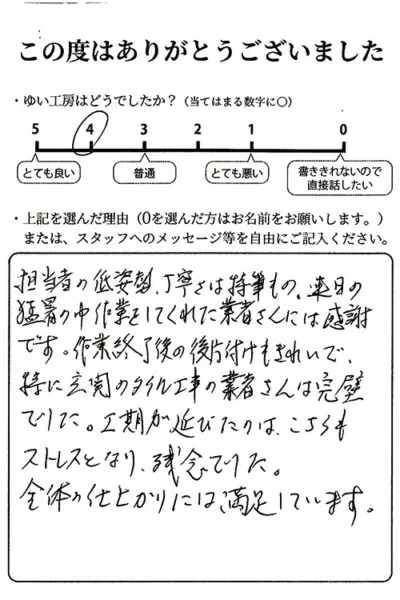 この度はありがとうございました
・ゆい工房はどうでしたか？（当てはまる数字に〇）
5 4 3 2 1 0
とても良い 普通 とても悪い 書ききれないので
直接話したい
・上記を選んだ理由（0を選んだ方はお名前をお願いします。）
または、スタッフへのメッセージ等を自由にご記入ください。
担当者の低姿勢、丁寧さは特筆もの、連日の
猛暑の中作業をしてくれた業者さんには感謝
です。作業終了後の後片付けもきれいで、
特に玄関のタイル工事の業者さんは完璧
でした。工期が延びたのは、こちらも
ストレスとなり、残念でした。
全体の仕上がりには満足しています。